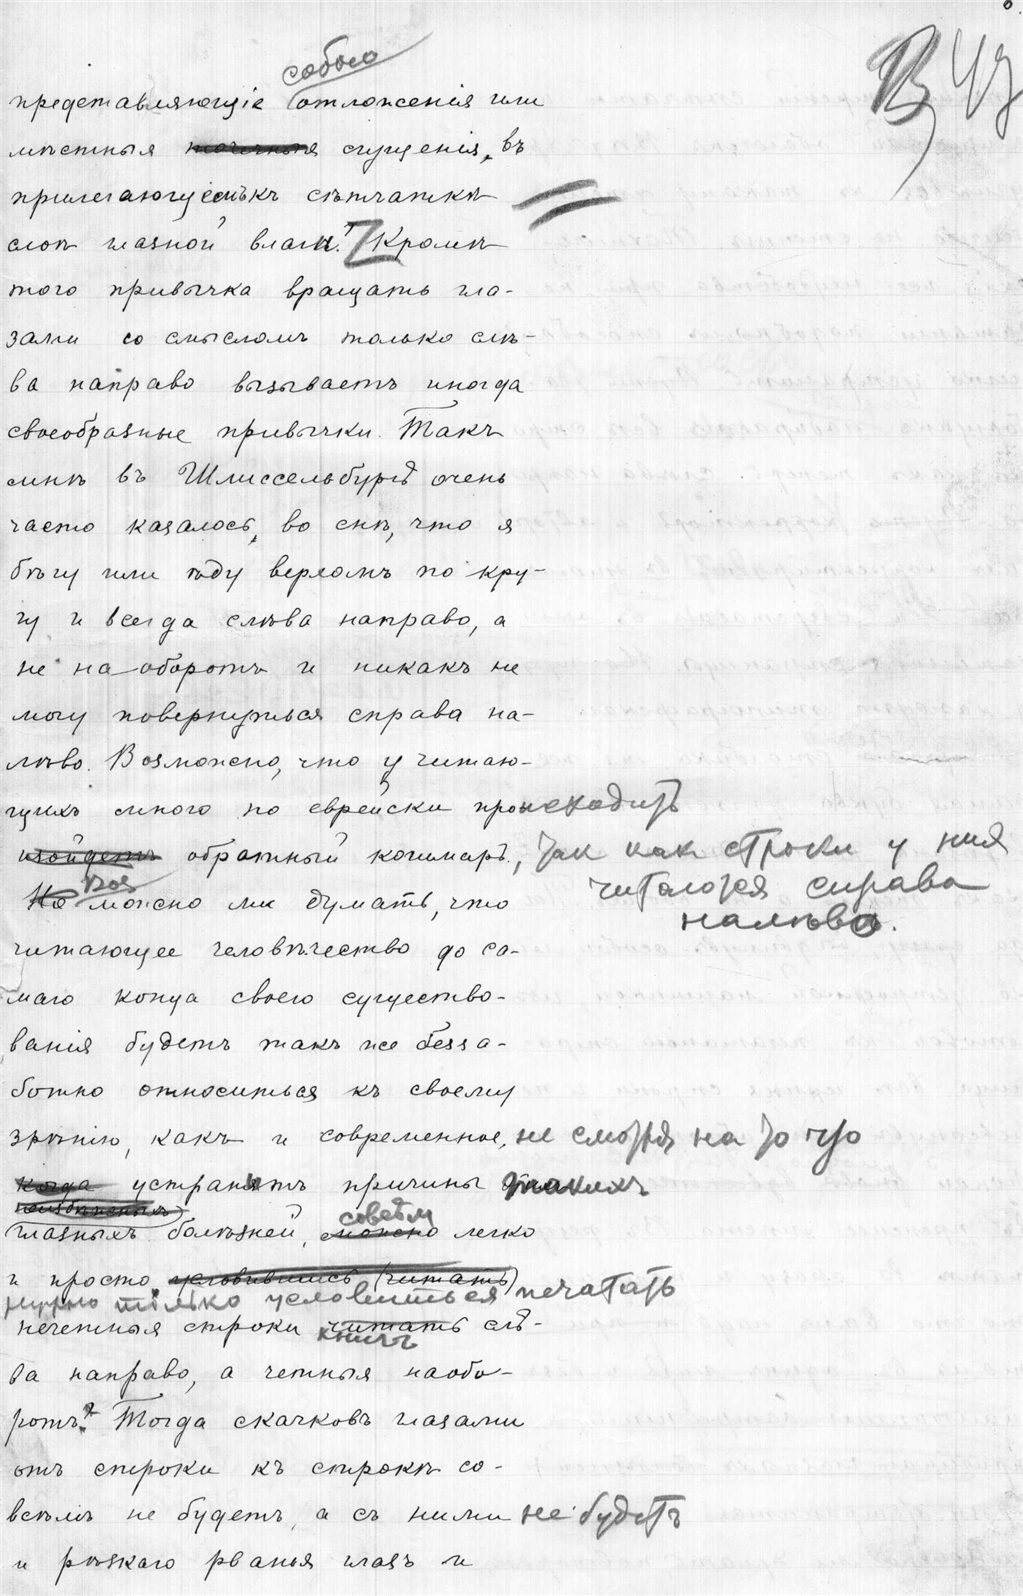 собою
представляющіе отложенія или
мѣстныя точечныя сгущенія, въ
прилегающемъ къ сѣтчаткѣ
слоѣ глазной влаги. Кромѣ
того привычка вращать гла-
зами со смысломъ только слѣ-
ва направо вызываетъ иногда
своеобразные привычки. Такъ
мнѣ въ Шлиссельбургѣ очень
часто казалось, во снѣ, что я
бѣгу или ѣду верхомъ по кру-
гу и всегда слѣва направо, а
не на оборотъ и никакъ не
могу повернуться справа на-
лѣво. Возможно, что у читаю-
щихъ много по еврейски происходитъ
изойдетъ обратный кошмаръ, так как строки у них
читаются справа
налѣво.
Но можно ли думать, что
читающее человѣчество до са-
маго конца своего существо-
ванія будетъ такъ же безза-
ботно относиться къ своему
зрѣнію, какъ и современное, не смотря на то что
когда устранить причины такихъ
неизбѣжныхъ
глазныхъ болѣзней, совсѣм можно легко
и просто условившись (читать)
нужно только условиться печатать
нечетныя строки читать слѣ-
книгъ
ва направо, а четныя наобо-
ротъ? Тогда скачковъ глазами
отъ строки къ строкѣ со-
всѣмъ не будетъ, а съ ними не будетъ
и рѣзкаго рванья глазъ и